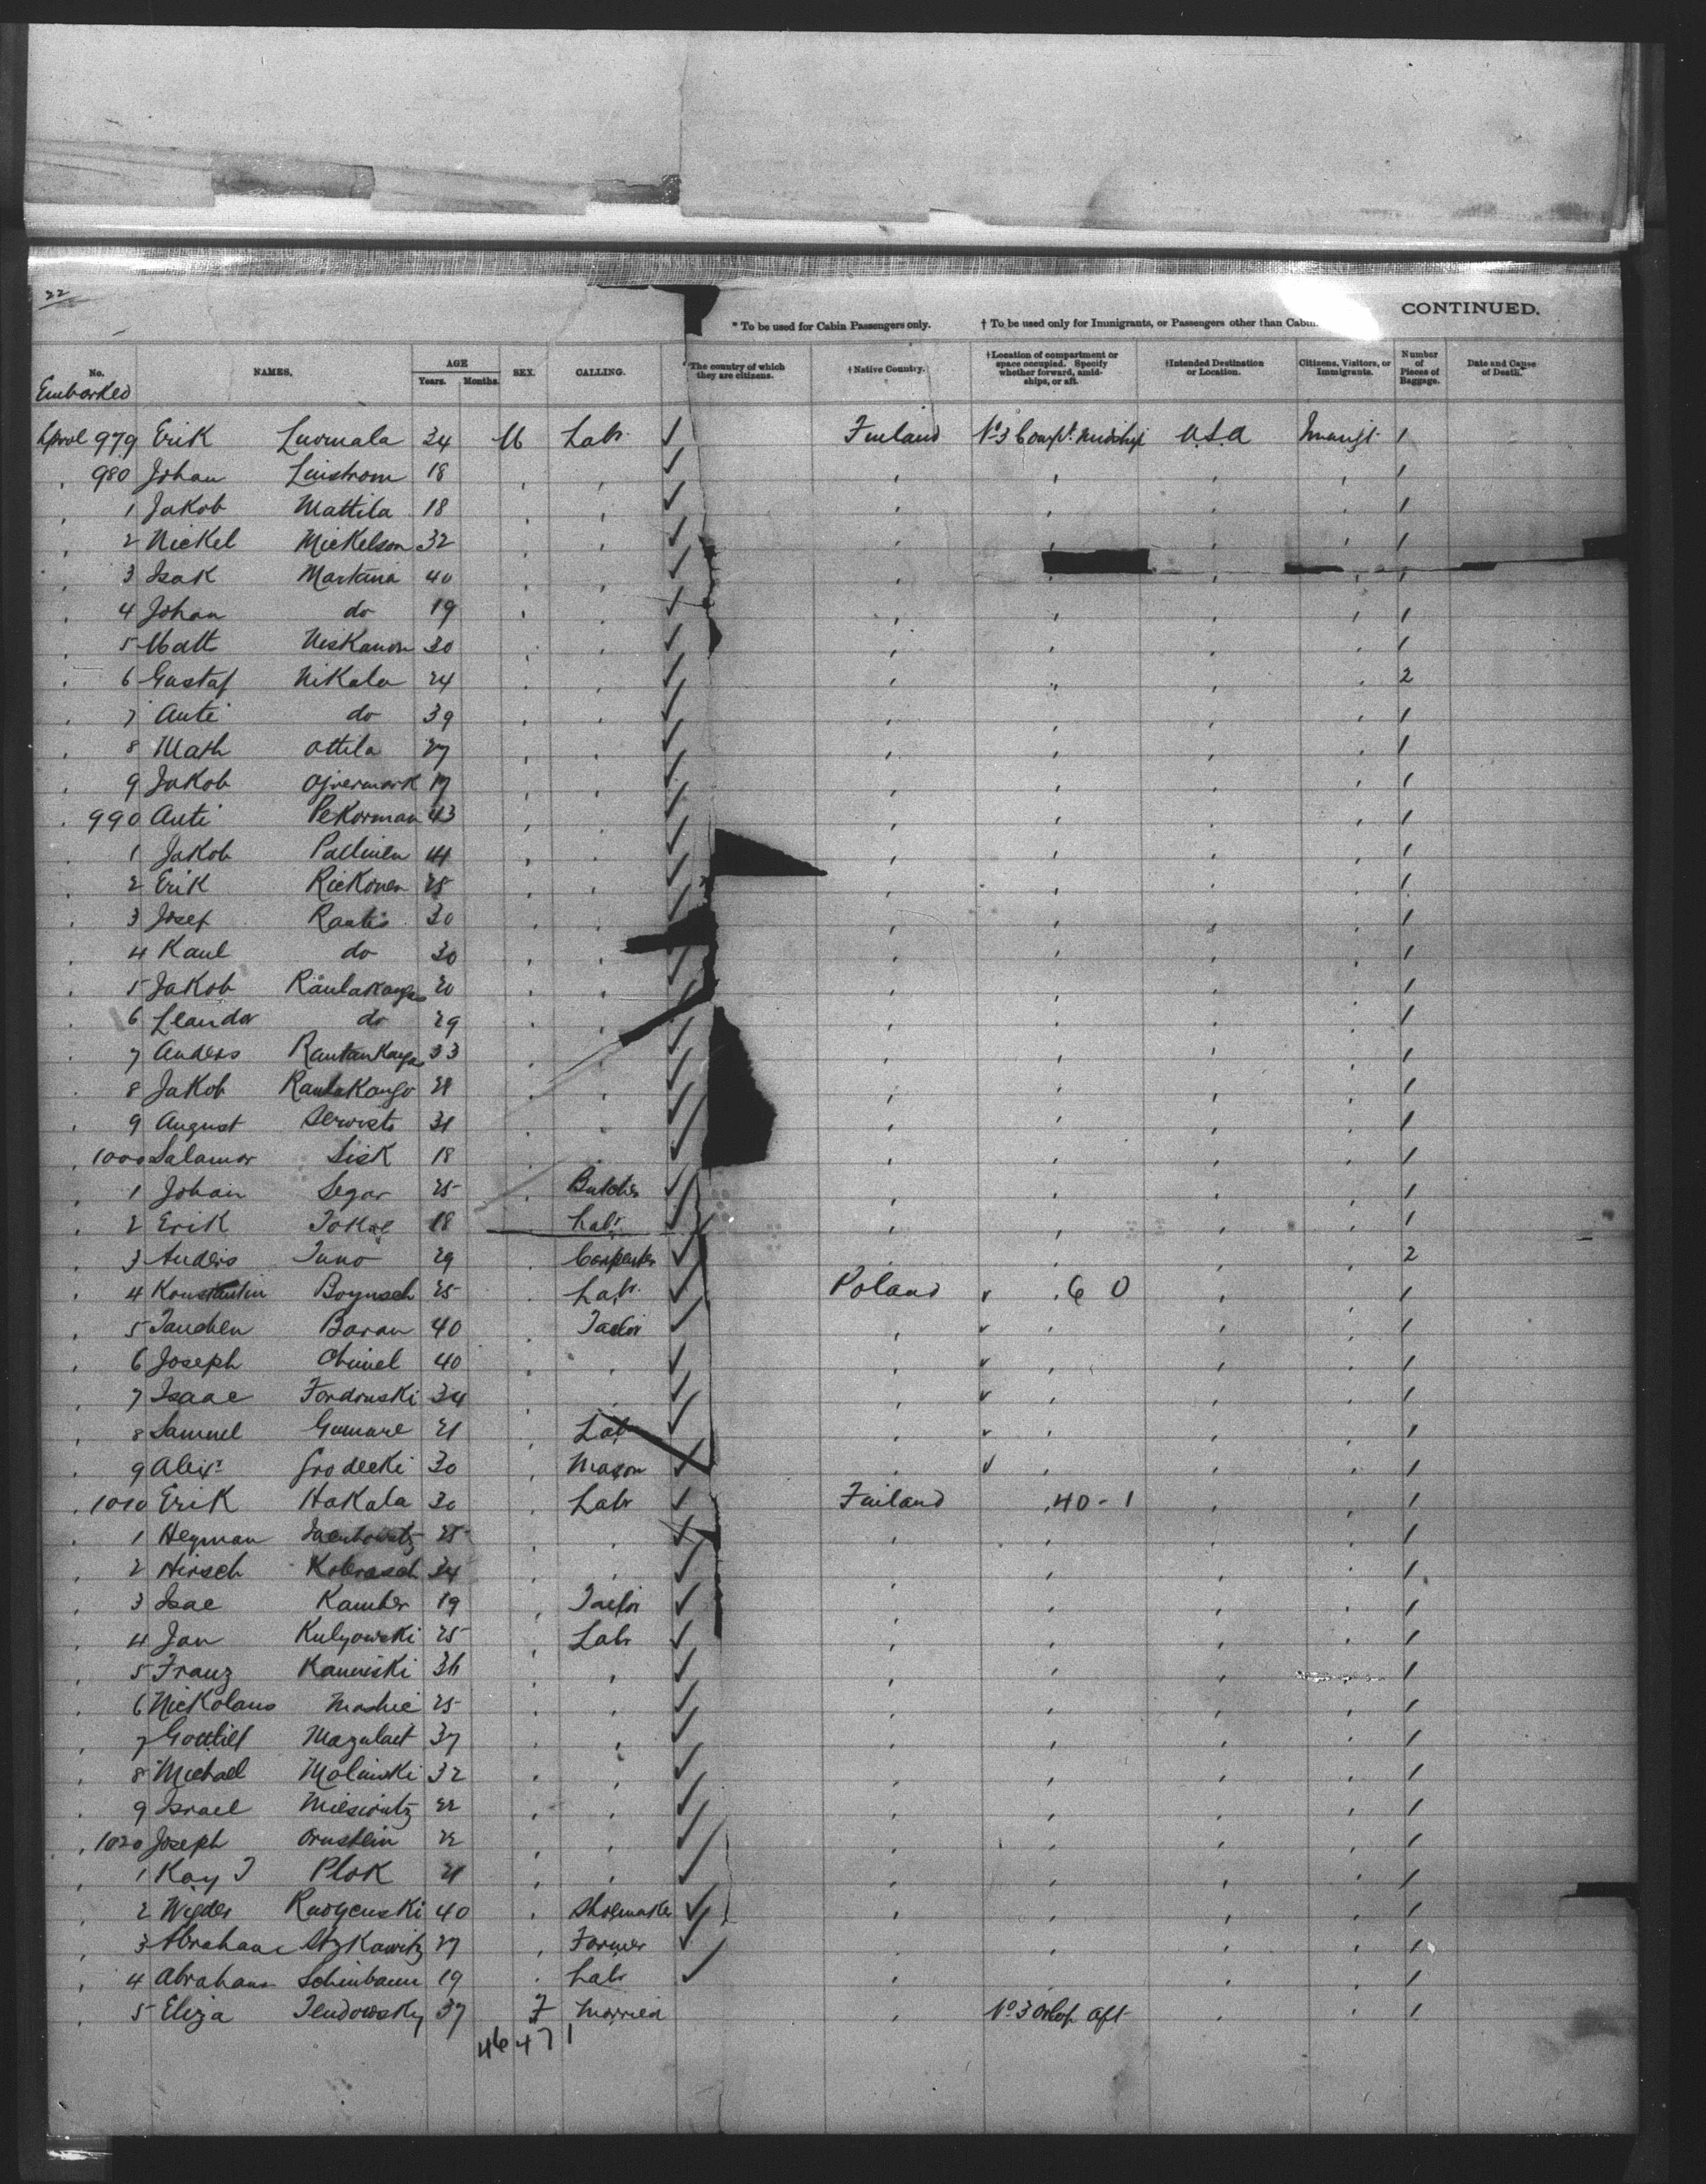 22
CONTINUED.
* To be used for Cabin Passengers only. † To be used only for Immigrants, or Passengers other than Cabin.
No. NAMES. AGE Years. Months. SEX. CALLING. *The country of which they are citizens. †Native Country. †Location of compartment or space occupied. Specify whether forward, amid-ships, or aft. †Intended Destination or Location. Citizens, Visitors, or Immigrants. Number of Pieces of Baggage. Date and Cause of Death.
Embarked
Lprol 979 Erik Luomala 34 M Labr ✓ Finland No 3 Compt. Midship U.S.A Immigt 1
980 Johan Linstrom 18 ✓ 1
1 Jakob Mattila 18 ✓ 1
2 Nickel Mickelson 32 ✓ 1
3 Isak Martana 40 ✓ 1
4 Johan do 19 ✓ 1
5 Matt Niskanon 30 ✓ 1
6 Gustaf Nikala 24 ✓ 2
7 Anti do 39 ✓ 1
8 Math Ottila 27 ✓ 1
9 Jakob 17 ✓ 1
990 Anti Pekorman 43 ✓ 1
1 Jakob Pallinen 44 ✓ 1
2 Erik Riekonen 25 ✓ 1
3 Josef Rautio 30 ✓ 1
4 Kaul do 30 ✓ 1
5 Jakob Raulakangas 20 ✓ 1
6 Leander do 29 ✓ 1
7 Anders Rautankangas 33 ✓ 1
8 Jakob Raulakango 21 ✓ 1
9 August 31 ✓ 1
1000 Salamor Sisk 18 ✓ 1
1 Johan Segar 25 Butcher ✓ 1
2 Erik 18 Labr ✓ 1
3 Anders Juno 29 Carpenter ✓ 2
4 Konstantin Boynsch 25 Labr ✓ Poland ✓ 60 1
5 Baran 40 Tailor ✓ ✓ 1
6 Joseph Chimel 40 ✓ ✓ 1
7 Isaac Fordonski 34 ✓ ✓ 1
8 Samuel 21 Labr ✓ ✓ 1
9 Alexr Grodecki 30 Mason ✓ ✓ 1
1010 Erik Hakala 30 Labr ✓ Finland 40-1 1
1 Heyman 25 ✓ 1
2 Hirsch 34 ✓ 1
3 Isac Kamber 19 Tailor ✓ 1
4 Jan Kulyowski 25 Labr ✓ 1
5 Franz Kaminski 36 ✓ 1
6 Nickolaus 25 ✓ 1
7 Gottlieb 37 ✓ 1
8 Michael Malinski 32 ✓ 1
9 Israel 22 ✓ 1
1020 Joseph Ornstein 22 ✓ 1
1 Kay J Plok 21 ✓ 1
2 40 Shoemaker ✓ 1
3 Abraham Itzkawitz 27 Farmer ✓ 1
4 Abraham Schinbaum 19 Labr ✓ 1
5 Eliza Tendowsky 37 F Married No 3 Orlop Aft 1
46 47 1